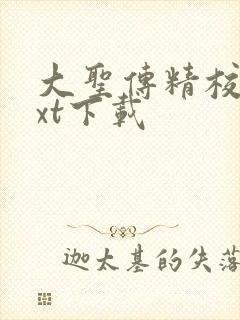 大聖傳精校
xt下載
迦太基的失落